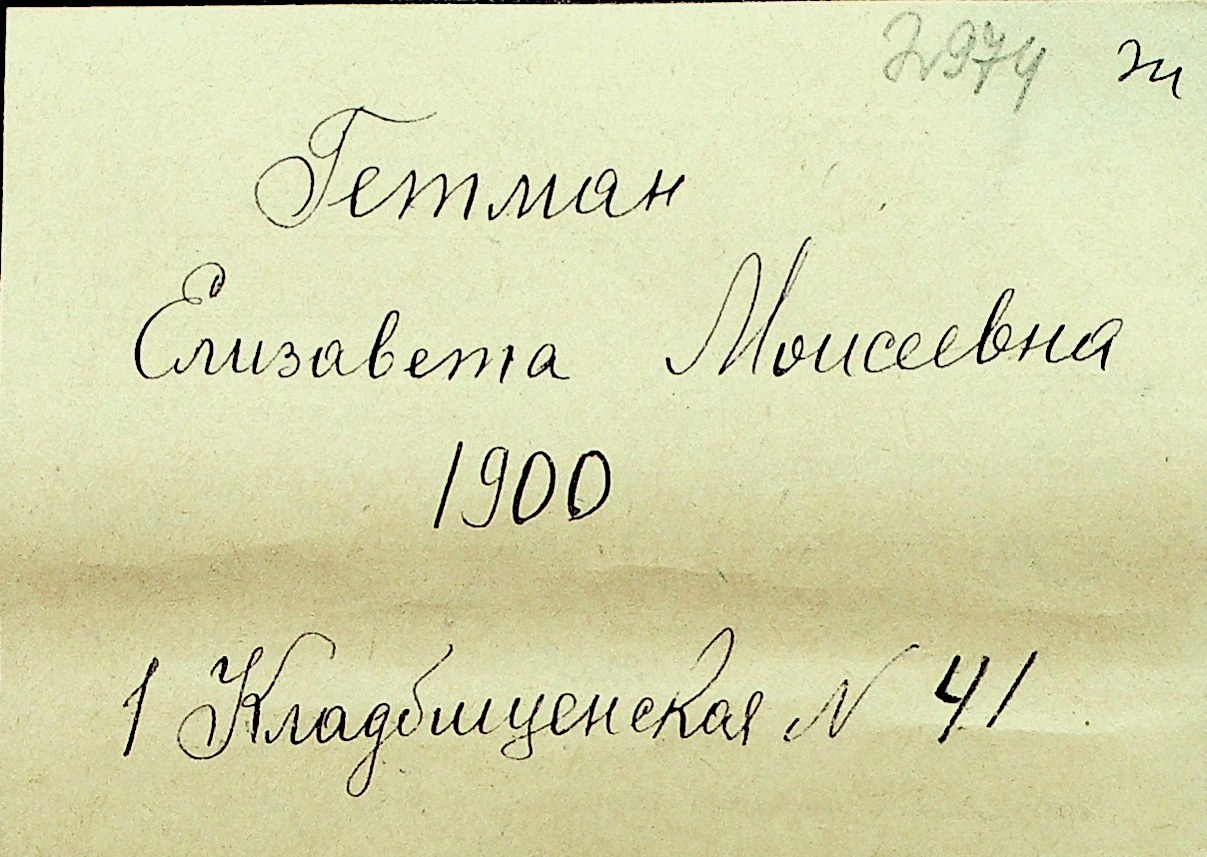 Гетман
Елизавета Моисеевна
1900
1 Кладбищенская N 41